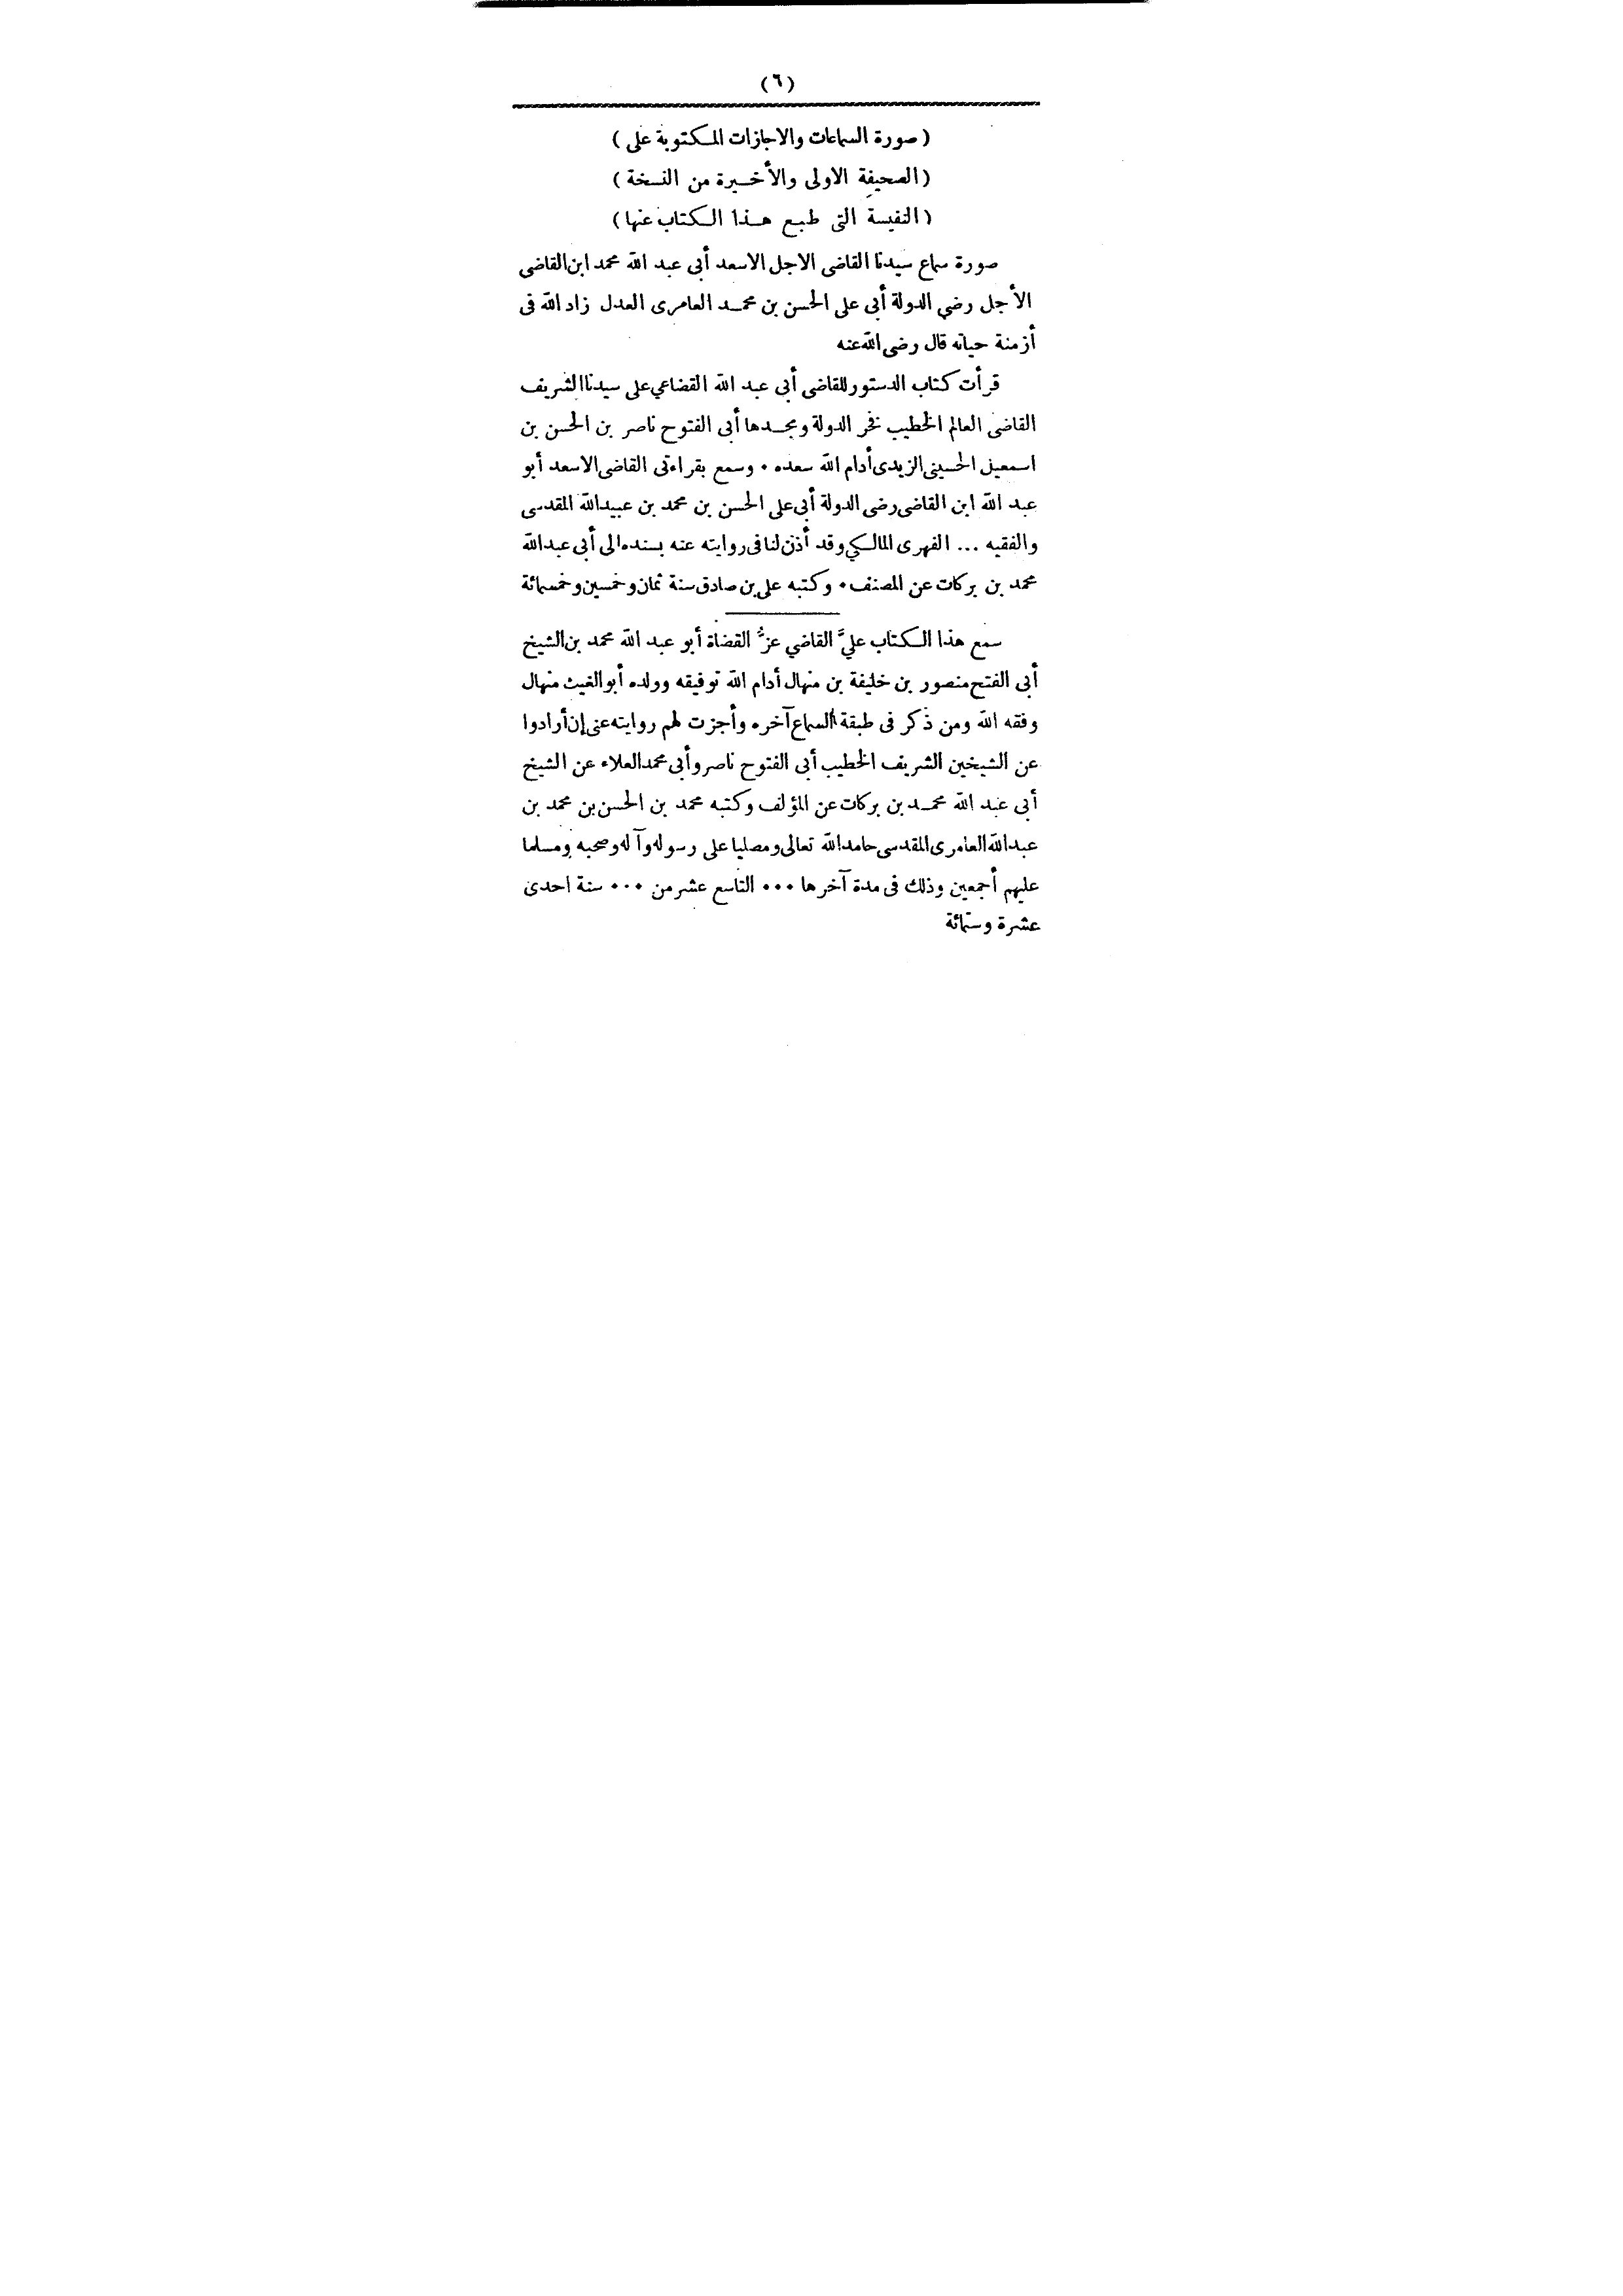 (٦)
( صورة السماعات والاجازات المكتوبة على )
( الصحيفة الاولى والأخيرة من النسخة )
( النفيسة التى طبع هذا الكتاب عنها )
صورة سماع سيدنا القاضى الاجل الاسعد أبى عبد الله محمد ابن القاضى
الأجل رضي الدولة أبى على الحسن بن محمد العامرى العدل زاد الله فى
أزمنة حياته قال رضى الله عنه
قرأت كتاب الدستور للقاضى أبى عبد الله القضاعي على سيدنا الشريف
القاضى العالم الخطيب فخر الدولة ومجدها أبى الفتوح ناصر بن الحسن بن
اسمعيل الحسينى الزيدى أدام الله سعده ٠ وسمع بقراءتى القاضى الاسعد أبو
عبد الله ابن القاضى رضى الدولة أبى على الحسن بن محمد بن عبيد الله المقدسى
والفقيه ... الفهرى المالكي وقد أذن لنا فى روايته عنه بسنده الى أبى عبد الله
محمد بن بركات عن المصنف ٠ وكتبه على بن صادق سنة ثمان وخمسين وخمسمائة
سمع هذا الكتاب عليَّ القاضي عزُّ القضاة أبو عبد الله محمد بن الشيخ
أبى الفتح منصور بن خليفة بن منهال أدام الله توفيقه وولده أبو الغيث منهال
وفقه الله ومن ذكر فى طبقة السماع آخره وأجزت لهم روايته عنى إن أرادوا
عن الشيخين الشريف الخطيب أبى الفتوح ناصر وأبى محمد العلاء عن الشيخ
أبى عبد الله محمد بن بركات عن المؤلف وكتبه محمد بن الحسن بن محمد بن
عبد الله العامرى المقدسى حامد الله تعالى ومصليا على رسوله وآله وصحبه ومسلما
عليهم أجمعين وذلك فى مدة آخرها ٠٠٠ التاسع عشر من ٠٠٠ سنة احدى
عشرة وستمائة